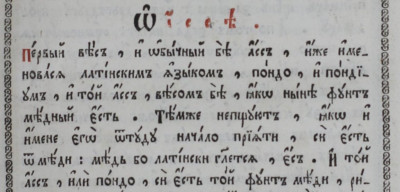 Ѡ҆ а҆́ссѣ .
Пе́рвый вѣ́съ , и҆ ѡ҆бы́чный бѣ̀ а҆́ссъ , и҆́же и҆ме-
нова́сѧ лати́нскимъ ѧ҆зы́комъ , по́ндо , и҆ понді́-
ꙋмъ , и҆ то́й а҆́ссъ , вѣ́сомъ бѣ̀ , ꙗ҆́кѡ ны́нѣ фꙋ́нтъ
мѣ́дный є҆́сть . Тѣ́мже непщꙋ́ютъ , ꙗ҆́кѡ и҆
и҆́мене є҆гѡ̀ ѿтꙋ́дꙋ нача́ло прїѧ́ти , сі́ есть
ѿ мѣ́ди : мѣ́дь бо лати́нски гл҃етсѧ , є҆́съ . И҆ то́й
а҆́ссъ , и҆лѝ по́ндо , сі́ есть то́й фꙋ́нтъ мѣ́ди , ри-